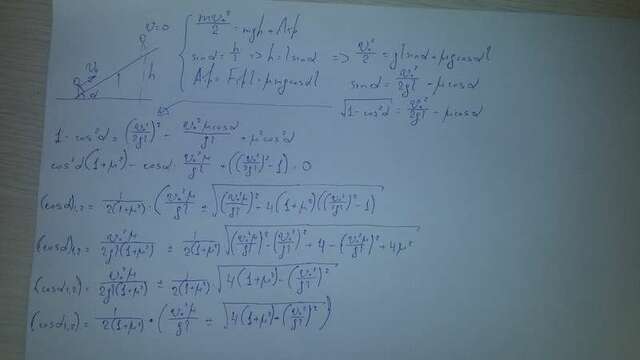 v=0
v₀ h α
{ mv₀²/2 = mgh + Aтр
sinα = h/l => h = lsinα => v₀²/2 = glsinα + μgcosαl
Aтр = Fтрl = μmgcosαl
sinα = v₀²/2gl - μcosα
√(1-cos²α) = v₀²/2gl - μcosα
1 - cos²α = (v₀²/2gl)² - v₀²μcosα/gl + μ²cos²α
cos²α(1+μ²) - cosα · v₀²μ/gl + ((v₀²/2gl)² - 1) = 0
(cosα)₁,₂ = 1/2(1+μ²) · (v₀²μ/gl ± √((v₀²μ/gl)² - 4(1+μ²)((v₀²/2gl)² - 1))
(cosα)₁,₂ = v₀²μ/2gl(1+μ²) ± 1/2(1+μ²) √((v₀²μ/gl)² - (v₀²/gl)² + 4 - (v₀²μ/gl)² + 4μ²)
(cosα)₁,₂) = v₀²μ/2gl(1+μ²) ± 1/2(1+μ²) √(4(1+μ²) - (v₀²/gl)²)
(cosα)₁,₂) = 1/2(1+μ²) · (v₀²μ/gl ± √(4(1+μ²) - (v₀²/gl)²))